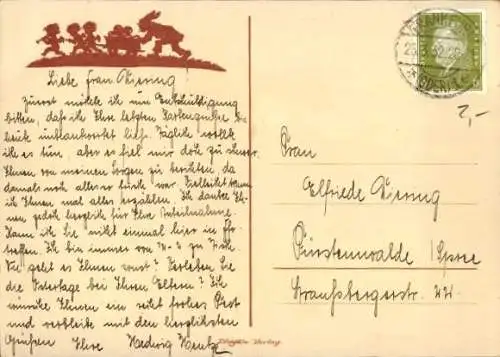 Liebe Frau Kiernig
Zuerst möchte ich um Entschuldigung
bitten, daß ich Ihre letzten Kartengrüße bis
heute unbeantwortet ließ. Täglich wollte
ich es tun, aber es fiel mir doch zu schwer
Ihnen von meinen Sorgen zu berichten, da
damals noch alles so war. Vielleicht kann
ich Ihnen mal alles erzählen. Ich danke Ih-
nen jedoch herzlich für Ihre Anteilnahme.
Kann ich Sie nicht einmal hier in
treffen. Ich bin immer von
Wie geht es Ihnen sonst? Verleben Sie
die Ostertage bei Ihren Eltern? Ich
wünsche Ihnen ein recht frohes Fest
und verbleibe mit den herzlichsten
Grüßen Ihre Hedwig
Frau
Elfriede Kiernig
Fürstenwalde /Spree
Straußbergerstr.
2,-
Verlag